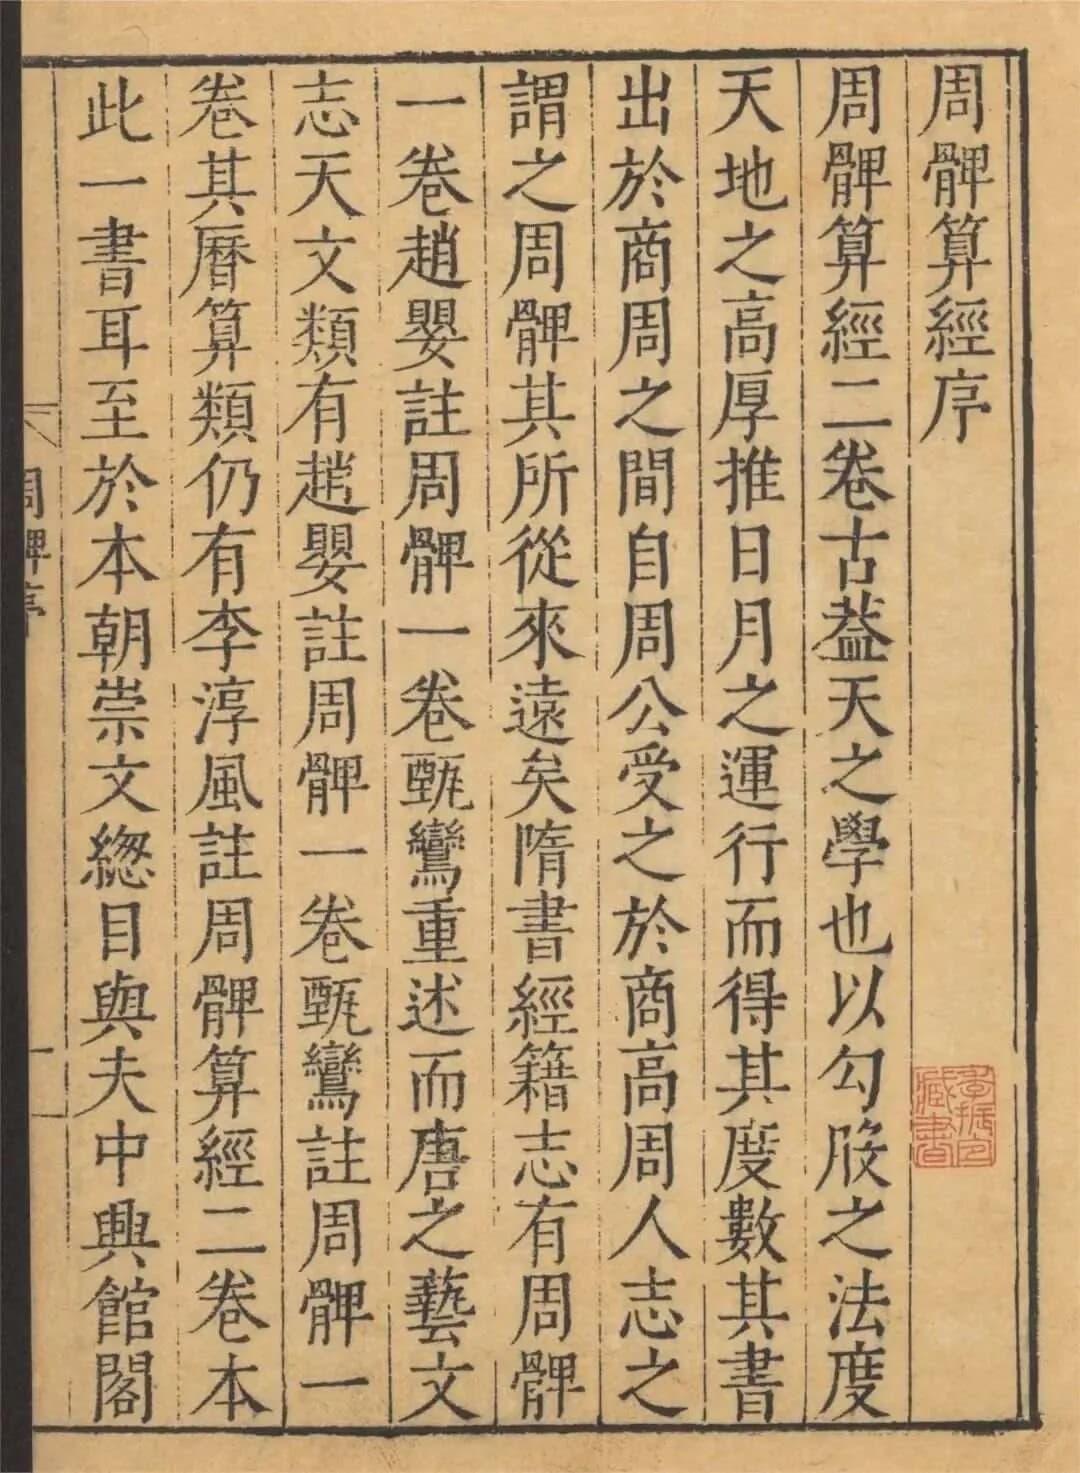 周髀算經序
周髀算經二卷古蓋天之學也以勾股之法度
天地之高厚推日月之運行而得其度數其書
出於商周之間自周公受之於商高周人志之
謂之周髀其所從來遠矣隋書經籍志有周髀
一卷趙嬰註周髀一卷甄鸞重述而唐之藝文
志天文類有趙嬰註周髀一卷甄鸞註周髀一
卷其曆算類仍有李淳風註周髀算經二卷本
此一書耳至於本朝崇文緫目與夫中興館閣
周髀序
一
藏書